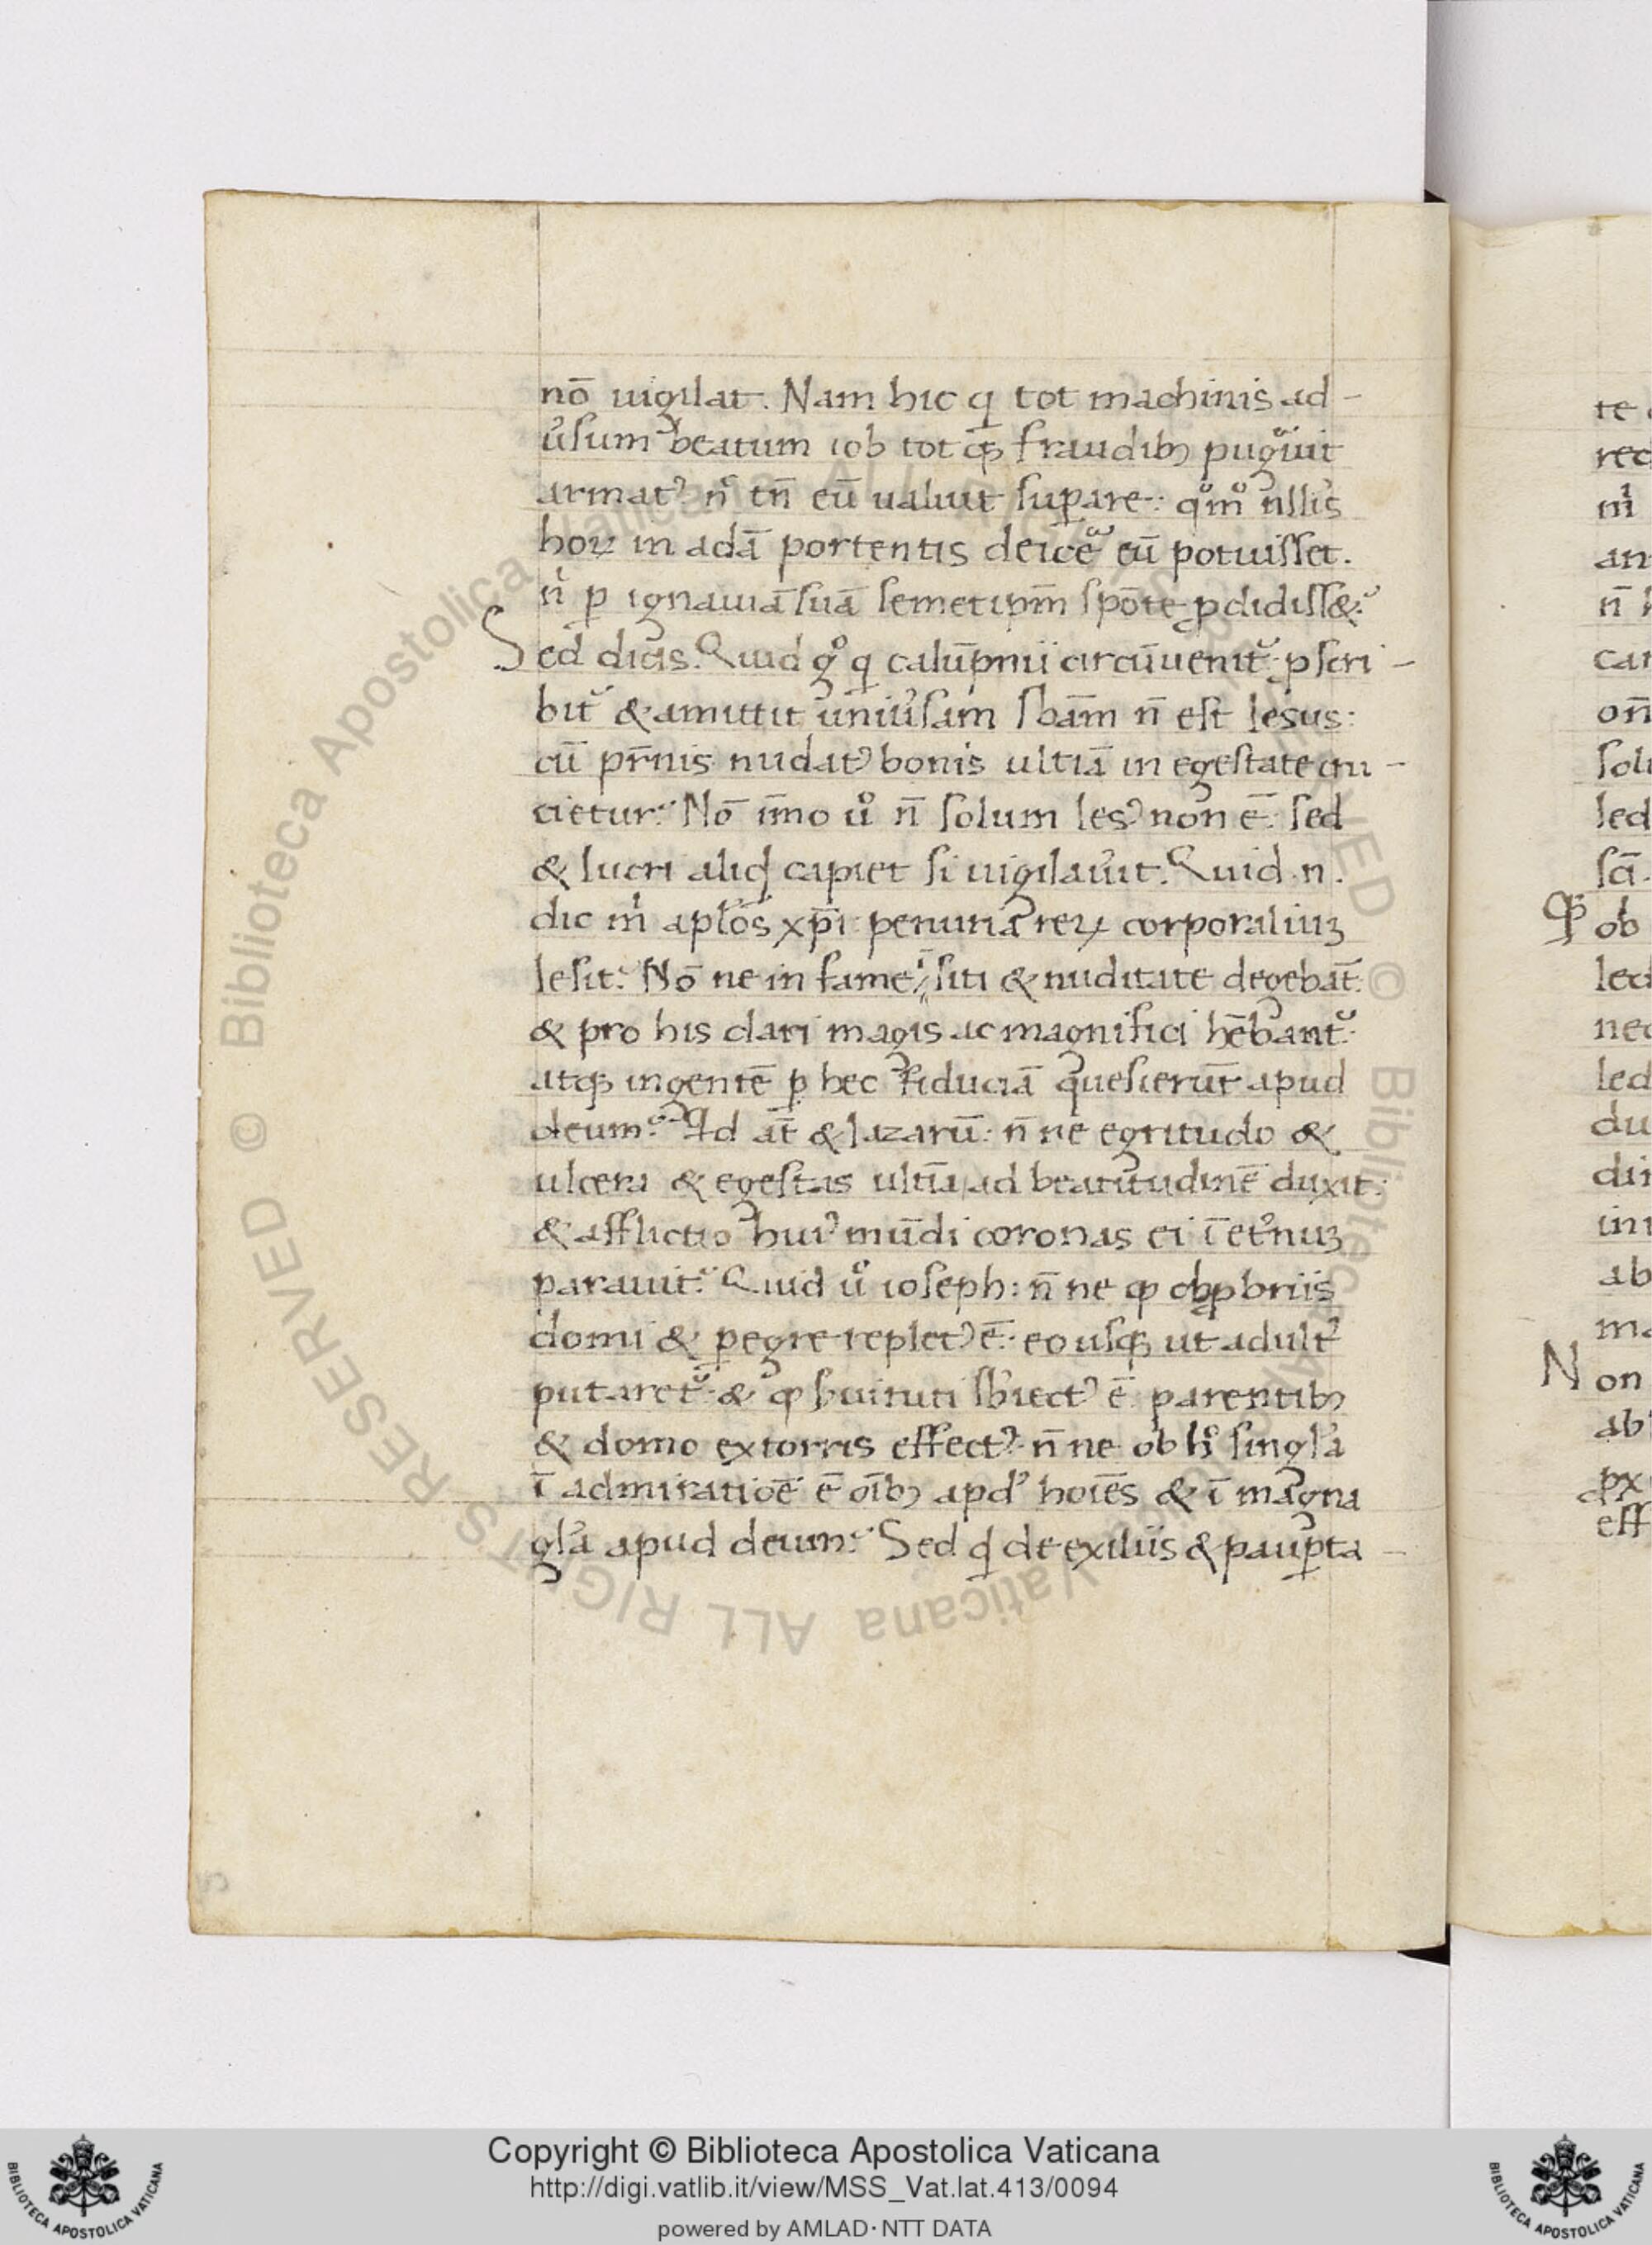 nō uigilat. Nam hic q tot machinis ad-
u̾sum beatum iob tot qꝫ fraudibꝫ pugᷓuit
armatꝰ nͨ tn̄ eū ualuit suꝑare: qͦmͦ ullis
hoꝝ in adā portentis deiceᷓ eū potuisset.
nͥ ꝑ ignauiā suā semetipm̄ spōte ꝑdidiss&.
Sed dicis. Quid gͦ q calūpnii circūuenit᷑ ꝓscri-
bit᷑ & amittit uniu̾sam sbām n̄ est lesus:
cū pr̄nis nudatꝰ bonis ultīa in egestate cru-
cietur. Nō īmo uͦ n̄ solum lesꝰ non ē. sed
& lucri aliqd capiet si uigilau̾it. Quid .n.
dic mͥ aplōs xp̄i penuria reꝝ corporaliuꝫ
lesit. Nō ne in fame, ī siti & nuditate degebāt.
& pro his clari magis ac magnifici hēbant᷑.
atqꝫ ingentē ꝑ hec fiduciā quesierūt apud
deum. Id āt & lazarū: n̄ ne egritudo &
ulcera & egestas ultīa ad beatitudinē duxit.
& afflictio huiꝰ mūdi coronas ei ī et̾nuꝫ
parauit. Quid uͦ ioseph: n̄ ne qꝫ obꝓbriis
domi & ꝑegre repletꝰ ē. eo usqꝫ ut adult̾
putaret᷑. & qꝫ s̾uituti sb̾iectꝰ ē parentibꝫ
& domo extorris effectꝰ. n̄ ne ob hͦ singlᷓa
ī admiratiōe ē oībꝫ apd̾ hoīes & ī magna
glᷓa apud deum. Sed qd de exiliis & pauꝑta-
te
rec
mͥ
an
n̄ h
car
on̄
solu
led
scā.
ob
led
nec
led
du
dir
in
ab
ma
Non
ab
px
eff
Copyright © Biblioteca Apostolica Vaticana
http://digi.vatlib.it/view/MSS_Vat.lat.413/0094
powered by AMLAD·NTT DATA